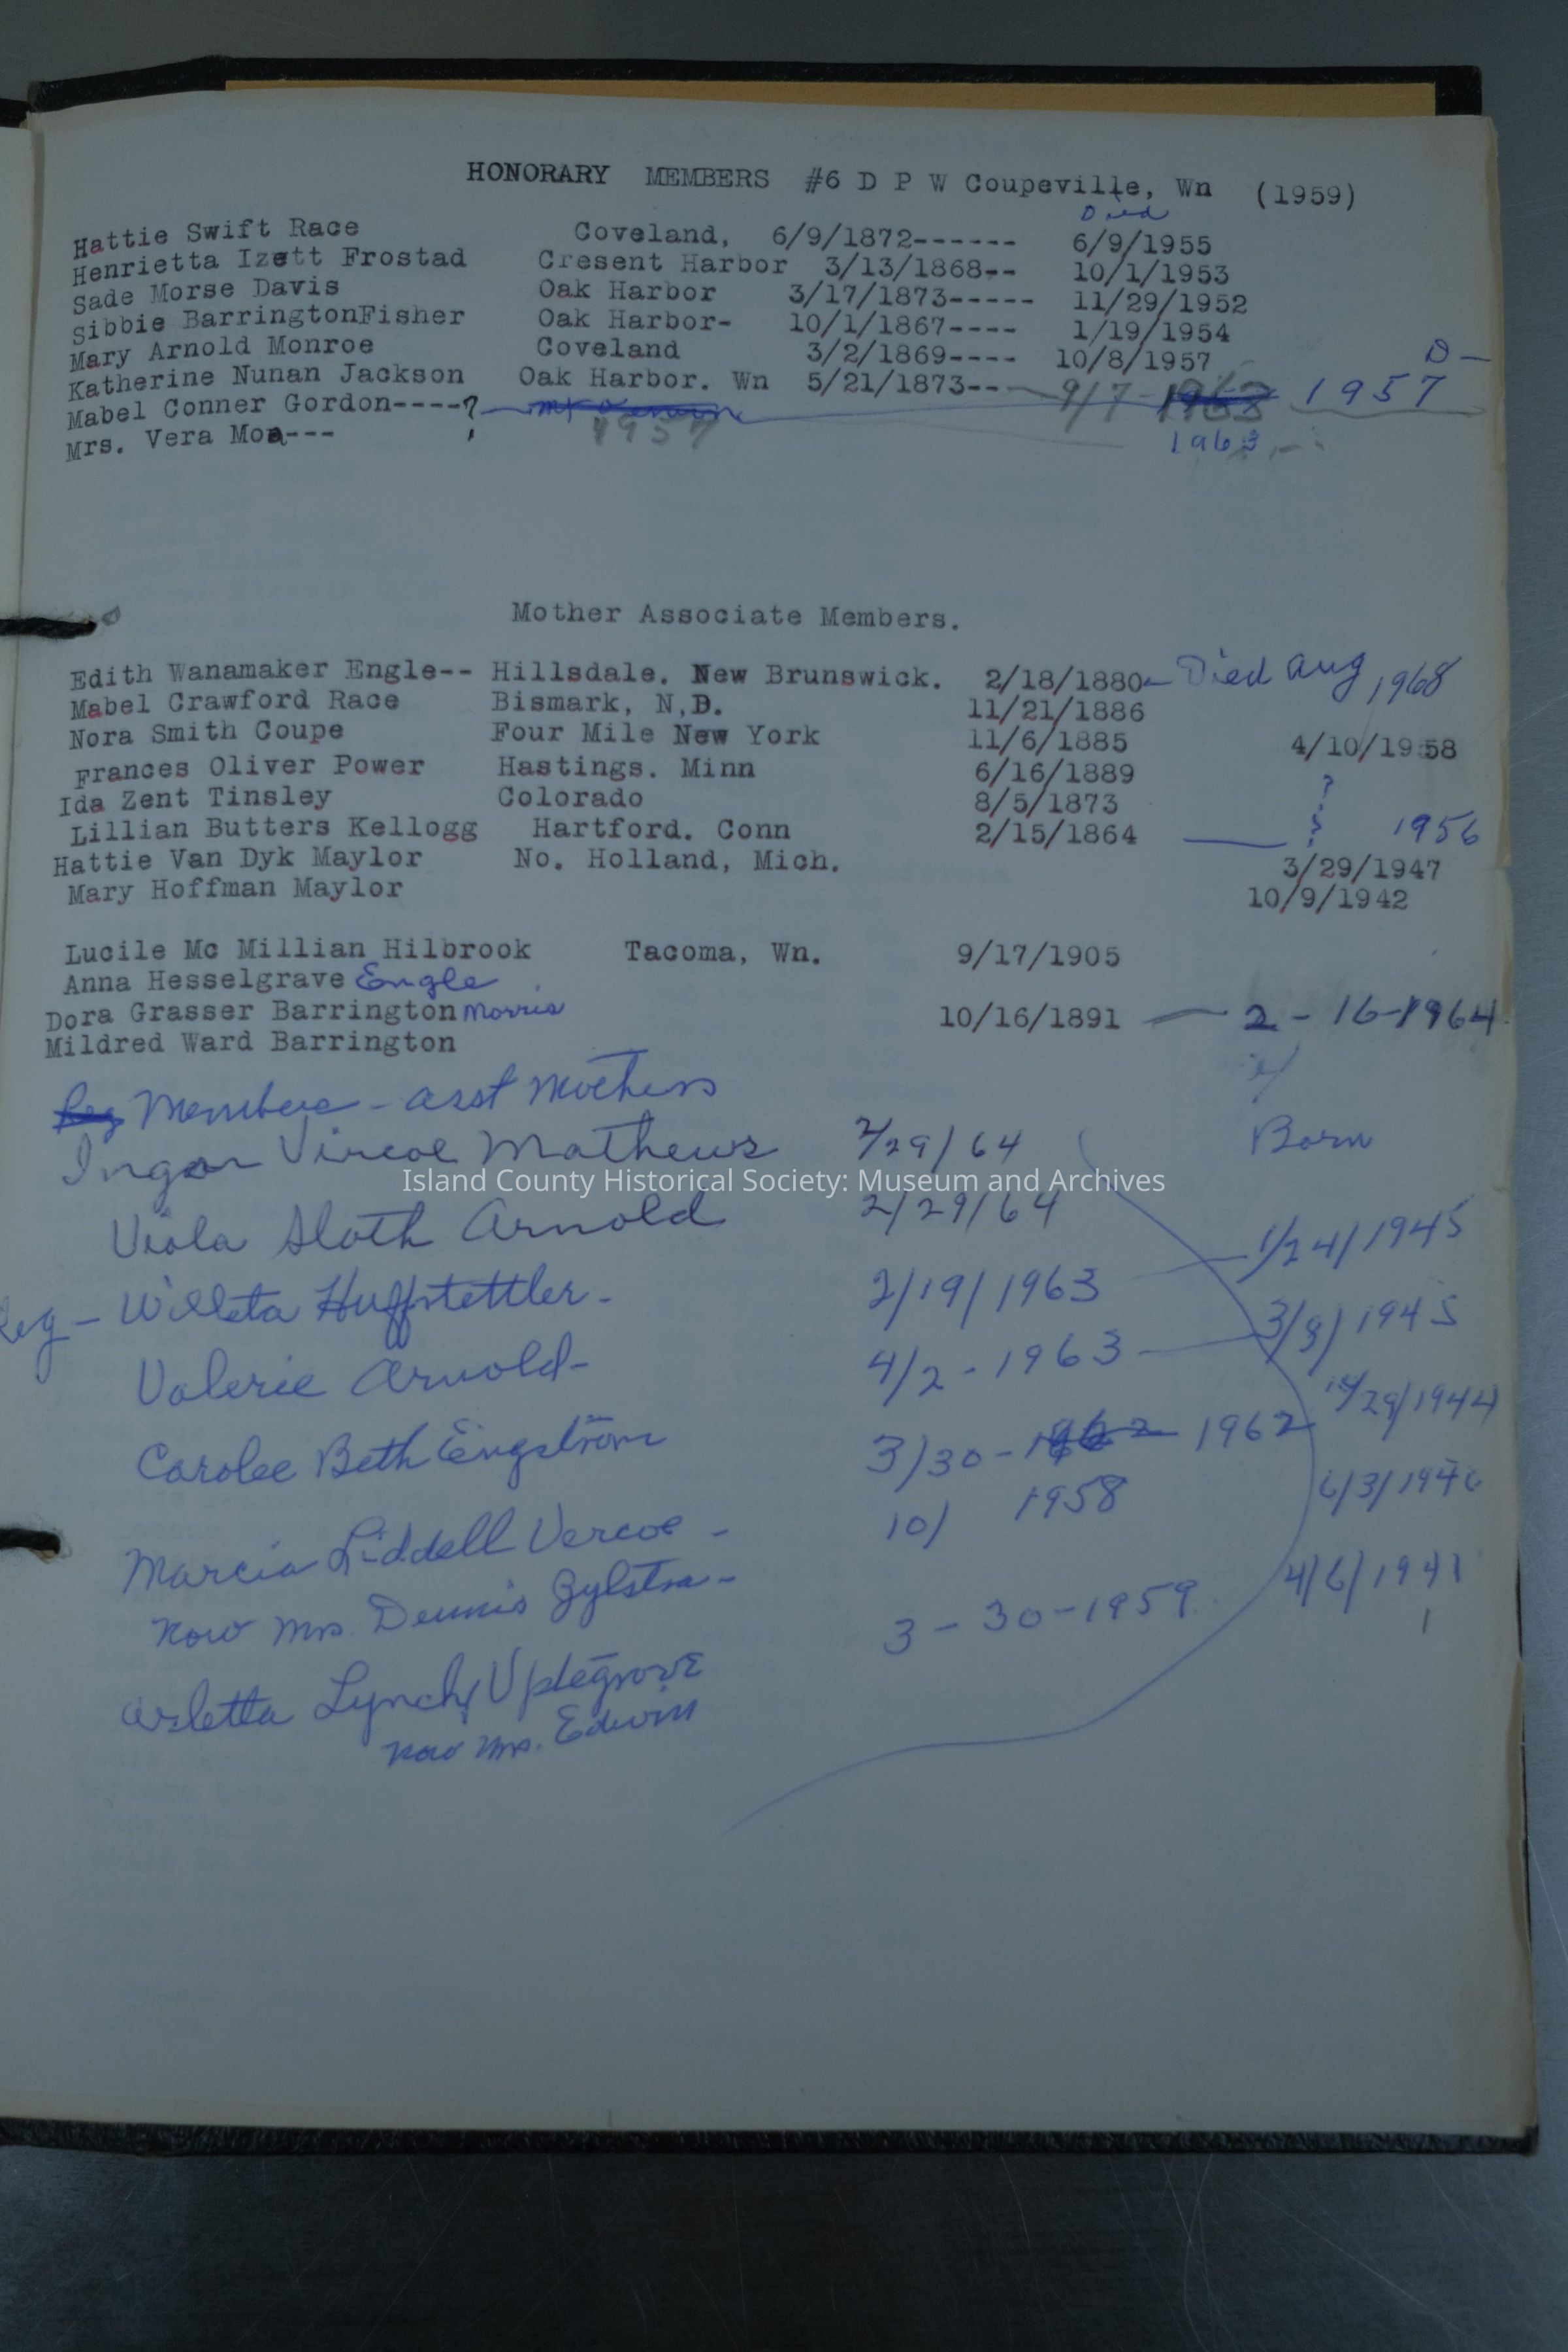 HONORARY MEMBERS #6 D P W Coupeville, Wn (1959)
Died
Hattie Swift Race Coveland, 6/9/1872------ 6/9/1955
Henrietta Izett Frostad Cresent Harbor 3/13/1868-- 10/1/1953
Sade Morse Davis Oak Harbor 3/17/1873----- 11/29/1952
Sibbie BarringtonFisher Oak Harbor- 10/1/1867---- 1/19/1954
Mary Arnold Monroe Coveland 3/2/1869---- 10/8/1957 D-
Katherine Nunan Jackson Oak Harbor. Wn 5/21/1873-- 9/7-1963 1957
Mabel Conner Gordon----?
Mrs. Vera Moa--- 1957 1963
Mother Associate Members.
Edith Wanamaker Engle-- Hillsdale. New Brunswick. 2/18/1880- Died Aug, 1968
Mabel Crawford Race Bismark, N,D. 11/21/1886
Nora Smith Coupe Four Mile New York 11/6/1885 4/10/1958
Frances Oliver Power Hastings. Minn 6/16/1889 ?
Ida Zent Tinsley Colorado 8/5/1873
Lillian Butters Kellogg Hartford. Conn 2/15/1864 ? 1956
Hattie Van Dyk Maylor No. Holland, Mich. 3/29/1947
Mary Hoffman Maylor 10/9/1942
Lucile Mc Millian Hilbrook Tacoma, Wn. 9/17/1905
Anna Hesselgrave Engle
Dora Grasser Barrington Morris 10/16/1891 - 2-16-1964
Mildred Ward Barrington
Reg Members - asst Mothers
Born
Vircoe Mathews 2/29/64
Viola Sloth Arnold 2/29/64
Reg - Willeta Huffstettler- 2/19/1963 - 1/24/1945
Valerie Arnold- 4/2-1963 - 3/8/1945
Carolee Beth Engstrom 3/30-1962 1962 /29/1944
Marcia Liddell Vercoe - 10/ 1958 6/3/194
now Mrs. Dennis Zylstra-
Arletta Lynch Uptegrove 3-30-1959 4/6/1941
now Mrs. Edwin
Island County Historical Society: Museum and Archives